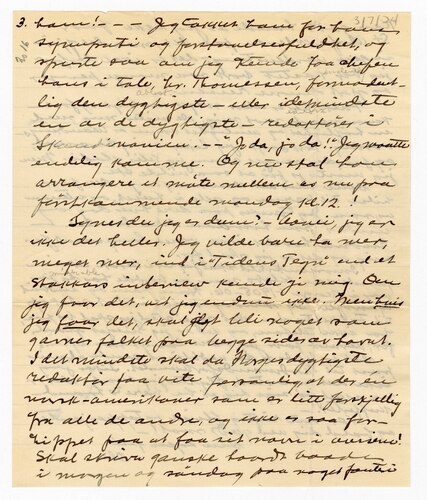 3. ham! - - - Jeg takket ham for hans
3/7/24
sympati og forstaaelsesfuldhet, og
spurte saa om jeg kunde faa chefen
hans i tale, hr. Thomessen, formodent-
lig den dygtigste - eller idetmindste
en av de dygtigste - redaktører i
Skandinavien. - - "Jo da, jo da!" Jeg maatte
endelig komme. Og nu skal han
arrangere et møte mellem os nu paa
førstkommende mandag kl. 12!
Synes du jeg er dum? - Aanei, jeg er
ikke det heller. Jeg vilde bare ha mer,
meget mer, ind i "Tidens Tegn" end et
stakkars interview kunde gi mig. Om
jeg faar det, vet jeg endnu ikke. Men hvis
jeg faar det, skal det bli noget som
gavner folket paa begge sider av havet.
I det mindste skal da Norges dygtigste
redaktør faa vite forsandig at des én
norsk-amerikaner som er litt forskjellig
fra alle de andre, og ikke er saa for-
hippet paa at faa sit navn i avisen!
Skal skrive ganske haardt baade
i morgen og søndag paa noget